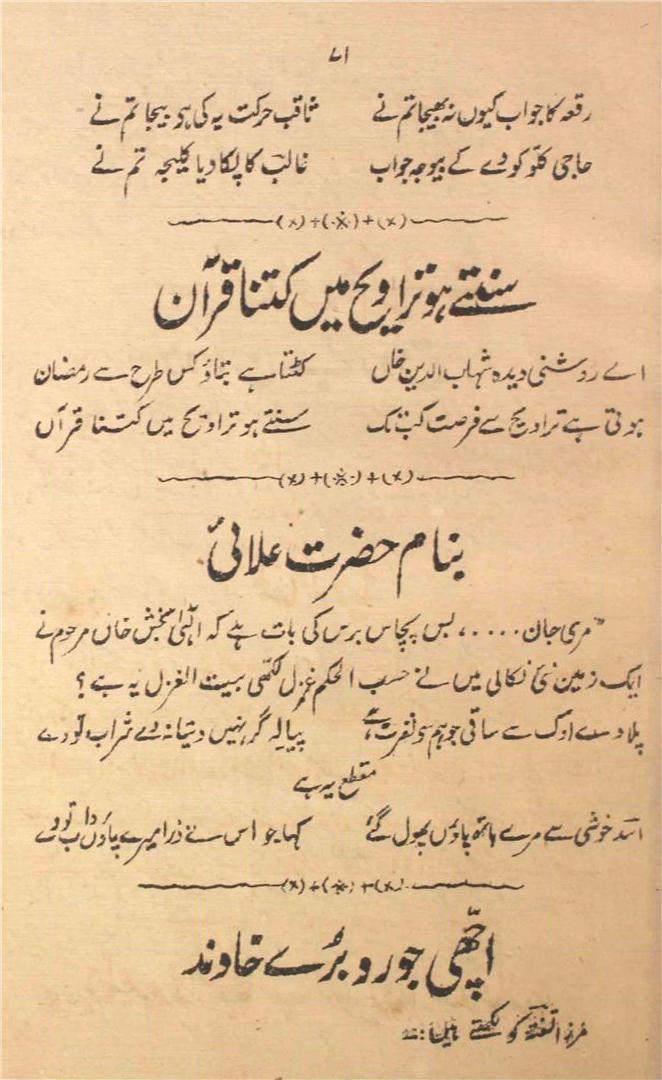 ۷۱
رقعہ کا جواب کیوں نہ بھیجا تم نے ثاقب حرکت یہ کی ہو بیجا تم نے
حاجی کلّو کو دے کے بیوجہ جواب غالب کا پکا دیا کلیجہ تم نے
سنتے ہو تراویح میں کتنا قرآن
اے روشنی دیدہ شہاب الدین خاں کٹتا ہے بتاؤ کس طرح سے رمضان
ہوتی ہے تراویح سے فرصت کب تک سنتے ہو تراویح میں کتنا قرآں
بنام حضرت علائی
"مری جان .....، بس پچاس برس کی بات ہے کہ الٰہی بخش خاں مرحوم نے
ایک زمین نئی نکالی میں نے حسب الحکم غزل لکھی بیت الغزل یہ ہے؟
پلا دے اوک سے ساقی جو ہم سو نفرت ہے پیالہ گر نہیں دیتا نہ دے شراب تو دے
مقطع یہ ہے
اسد خوشی سے مرے ہاتھ پاؤں پھول گئے کہا جو اس نے ذرا میرے پاؤں داب تو دے
اچّھی جورو بُرے خاوند
مرزا تفتہ کو لکھتے ہیں :۔